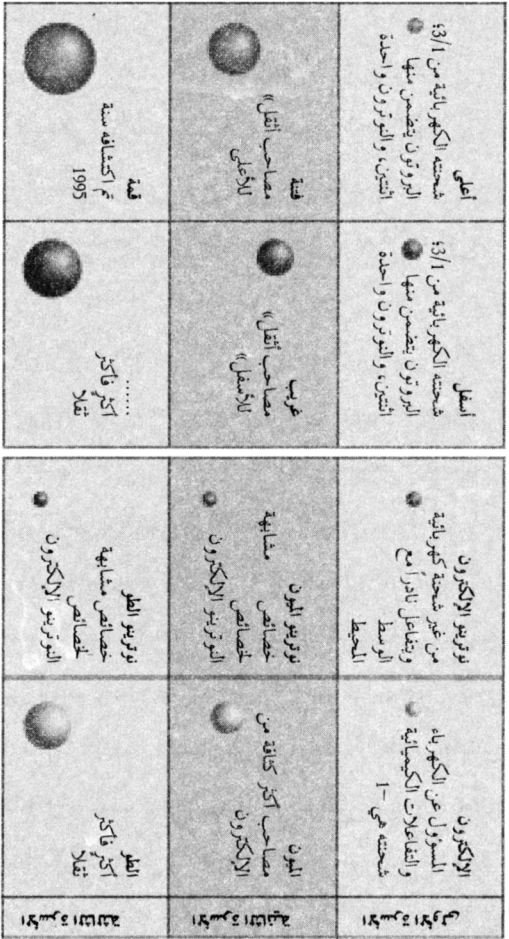 الأسرة الأولى
الإلكترون
المسؤول عن الكهرباء
والتفاعلات الكيميائية
شحنته هي -1
نوترينو الإلكترون
من غير شحنة كهربائية
ويتفاعل نادراً مع
الوسط
المحيط
أسفل
شحنته الكهربائية من 3/1؛
البروتون يتضمن منها
اثنتين، والنوترون واحدة
أعلى
شحنته الكهربائية من 3/1؛
البروتون يتضمن منها
اثنتين، والنوترون واحدة
الأسرة الثانية
الميون
مصاحب أكثر كثافة من
الإلكترون
نوترينو الميون
خصائص مشابهة
لخصائص
النوترينو الإلكترون
غريب
مصاحب أثقل»
للأسفل»
فتنة
مصاحب أثقل»
للأعلى
الأسرة الثالثة
الطو
أكثر فأكثر
ثقلا
نوترينو الطو
خصائص مشابهة
لخصائص
النوترينو الإلكترون
......
أكثر فأكثر
ثقلا
قمة
تم اكتشافه سنة
1995